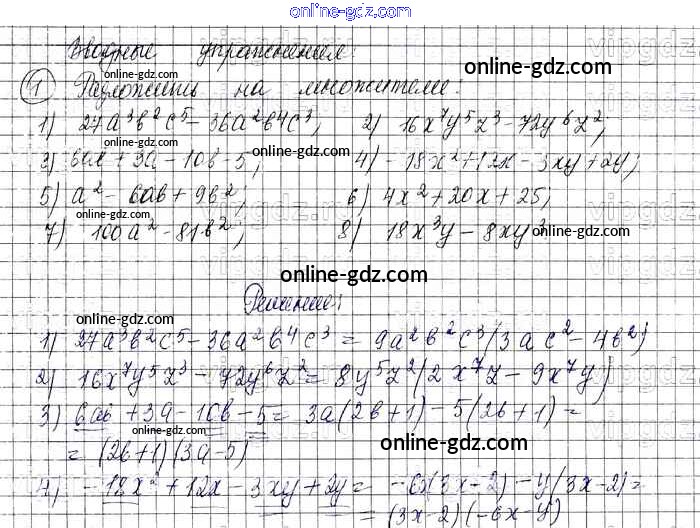 online-gdz.com
Вводные упражнения:
online-gdz.com
online-gdz.com
① Разложить на множители:
online-gdz.com
1) 27a³b²c⁵ - 36a²b⁴c³; 2) 16x⁷y⁵z³ - 72y⁶z²;
online-gdz.com
3) 6ab + 3a - 10b - 5; 4) -18x² + 12x - 3xy + 2y;
5) a² - 6ab + 9b²; 6) 4x² + 20x + 25;
online-gdz.com
7) 100a² - 81b²; 8) 18x³y - 8xy³
online-gdz.com
online-gdz.com
Решение:
online-gdz.com
1) 27a³b²c⁵ - 36a²b⁴c³ = 9a²b²c³(3ac² - 4b²)
2) 16x⁷y⁵z³ - 72y⁶z² = 8y⁵z²(2x⁷z - 9x⁷y)
online-gdz.com
3) 6ab + 3a - 10b - 5 = 3a(2b+1) - 5(2b+1) =
= (2b+1)(3a-5)
online-gdz.com
4) -18x² + 12x - 3xy + 2y = -6x(3x-2) - y(3x-2) =
= (3x-2)(-6x-y)
online-gdz.com